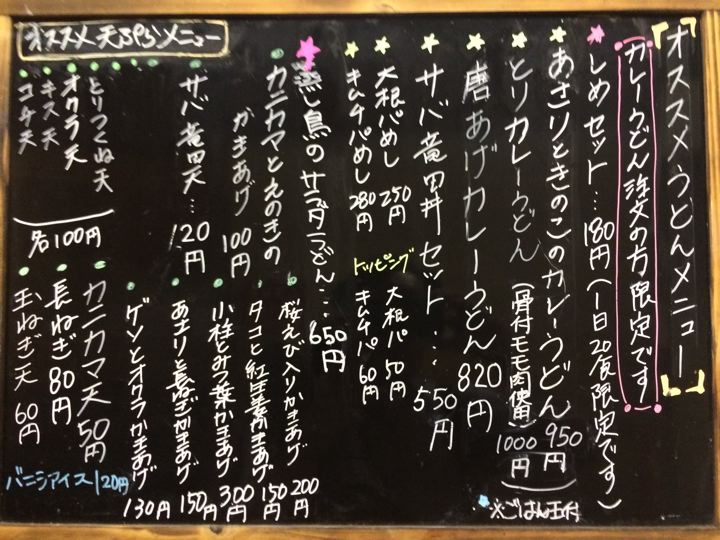 オススメうどんメニュー
カレーうどん注文の方限定です
しめセット…180円(一日20食限定です)
あさりときのこのカレーうどん950円
とりカレーうどん(骨付モモ肉使用)1000円
※ごはん付
唐あげカレーうどん820円
サバ竜田丼セット…550円
大根パめし250円
キムチパめし280円
トッピング
大根パ50円
キムチパ60円
蒸し鳥のサラダうどん…650円
オススメ天ぷらメニュー
カニカマとえのきの
かきあげ100円
サバ竜田天…120円
とりつくね天
オクラ天
キス天
コチ天
各100円
桜えび入りかきあげ200円
タコと紅生姜かきあげ150円
小柱とみつ葉かきあげ300円
あさりと長ねぎかきあげ150円
ゲソとオクラかきあげ130円
カニカマ天50円
長ねぎ80円
玉ねぎ天60円
バニラアイス120円